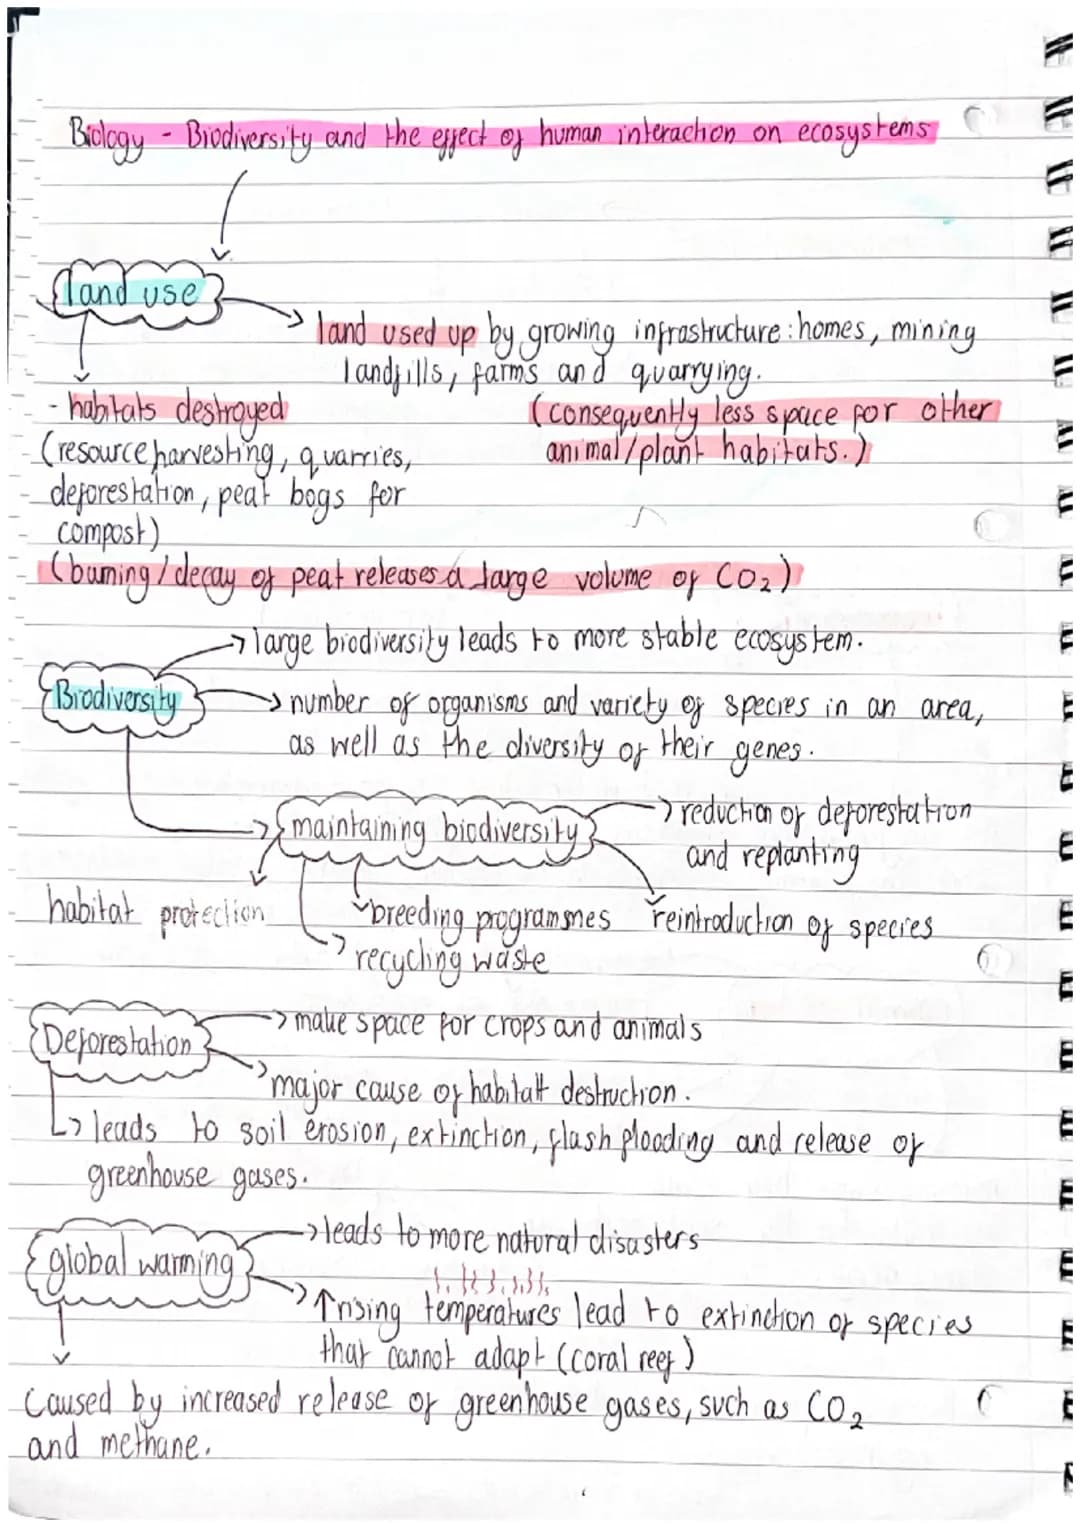 Biology - Biodiversity and the effect of human interaction on ecosystems
land use
land used up by growing infrastructure: homes, mining
landfills, farms and quarrying.
(consequently less space for other
animal/plant habitats.)
- habitats destroyed
(resource harvesting, quarries,
deforestation, peat bogs for
compost)
(burning/decay of peat releases a large volume of CO₂)
large biodiversity leads to more stable ecosystem.
Biodiversity
number of organisms and variety of species in an area,
as well as the diversity of their genes.
maintaining biodiversity
reduction of deforestation
and replanting
habitat protection
breeding programmes
reintroduction of species
recycling waste
Deforestation
make space for crops and animals
major cause of habitatt destruction.
leads to soil erosion, extinction, flash flooding and release of
greenhouse gases.
global warming
leads to more natural disasters
↑rising temperatures lead to extinction of species
that cannot adapt (coral reef)
Caused by increased release of greenhouse gases, such as CO₂
and methane.